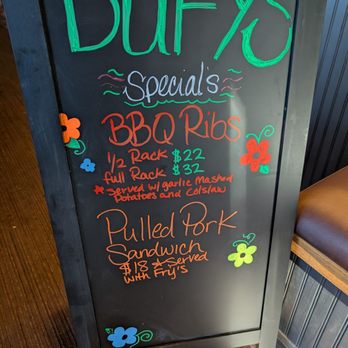 DUFYS
Special's
BBQ Ribs
1/2 Rack $22
full Rack $32
*Served w/garlic Mashed
Potatoes and Colslaw
Pulled Pork
Sandwich
$18 *Served
with Fry's